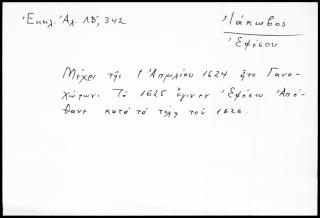 Ἐκκλ. Ἀλ. ΛΔ', 342
Ἰάκωβος
Ἐφέσου
Μέχρι τῆς 1 Ἀπριλίου 1624 ἦτο Γάνο-
χώρων. Τὸ 1625 ἔγινεν Ἐφέσου. Ἀπέ-
θανε κατὰ τὰ τέλη τοῦ 1626.